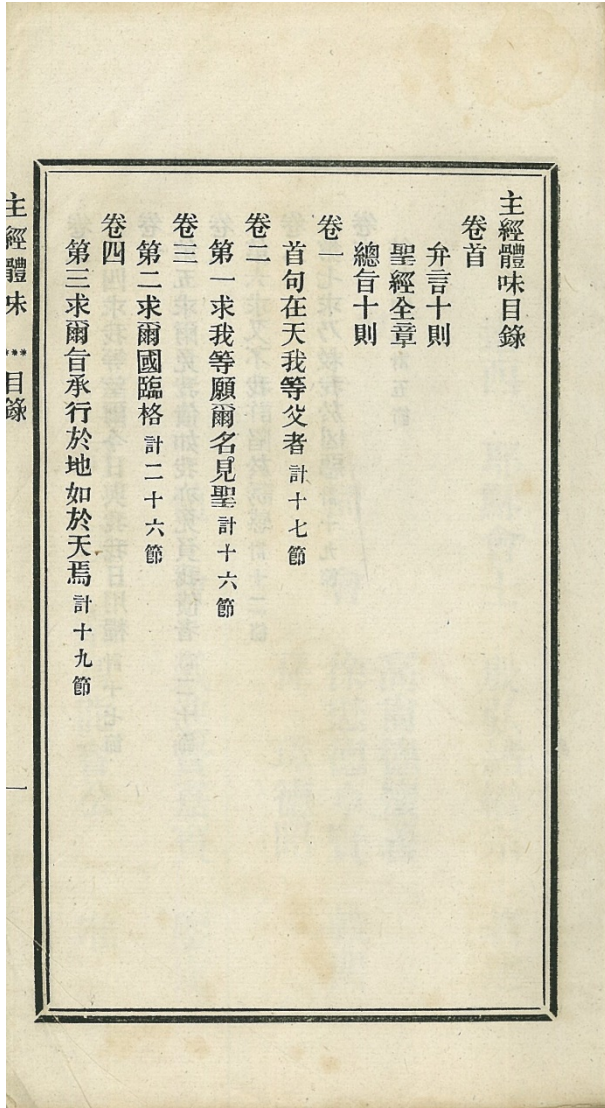 主經體味目錄
卷首
弁言十則
聖經全章
總旨十則
卷一
首句在天我等父者計十七節
卷二
第一求我等願爾名見聖計十六節
卷三
第二求爾國臨格計二十六節
卷四
第三求爾旨承行於地如於天焉計十九節
主經體味 目錄 一